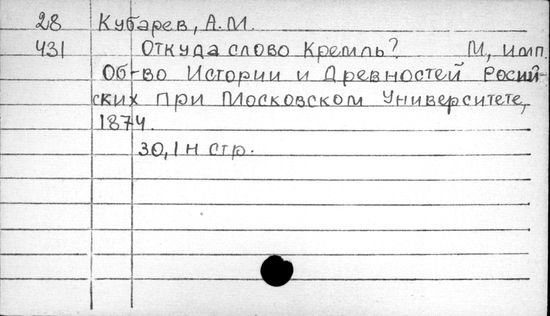 28 Кубарев, А.М.
431 Откуда слово Кремль? М, имп.
Об-во Истории и Древностей Росий-
ских при Московском Университете,
1874.
30, 1 н стр.